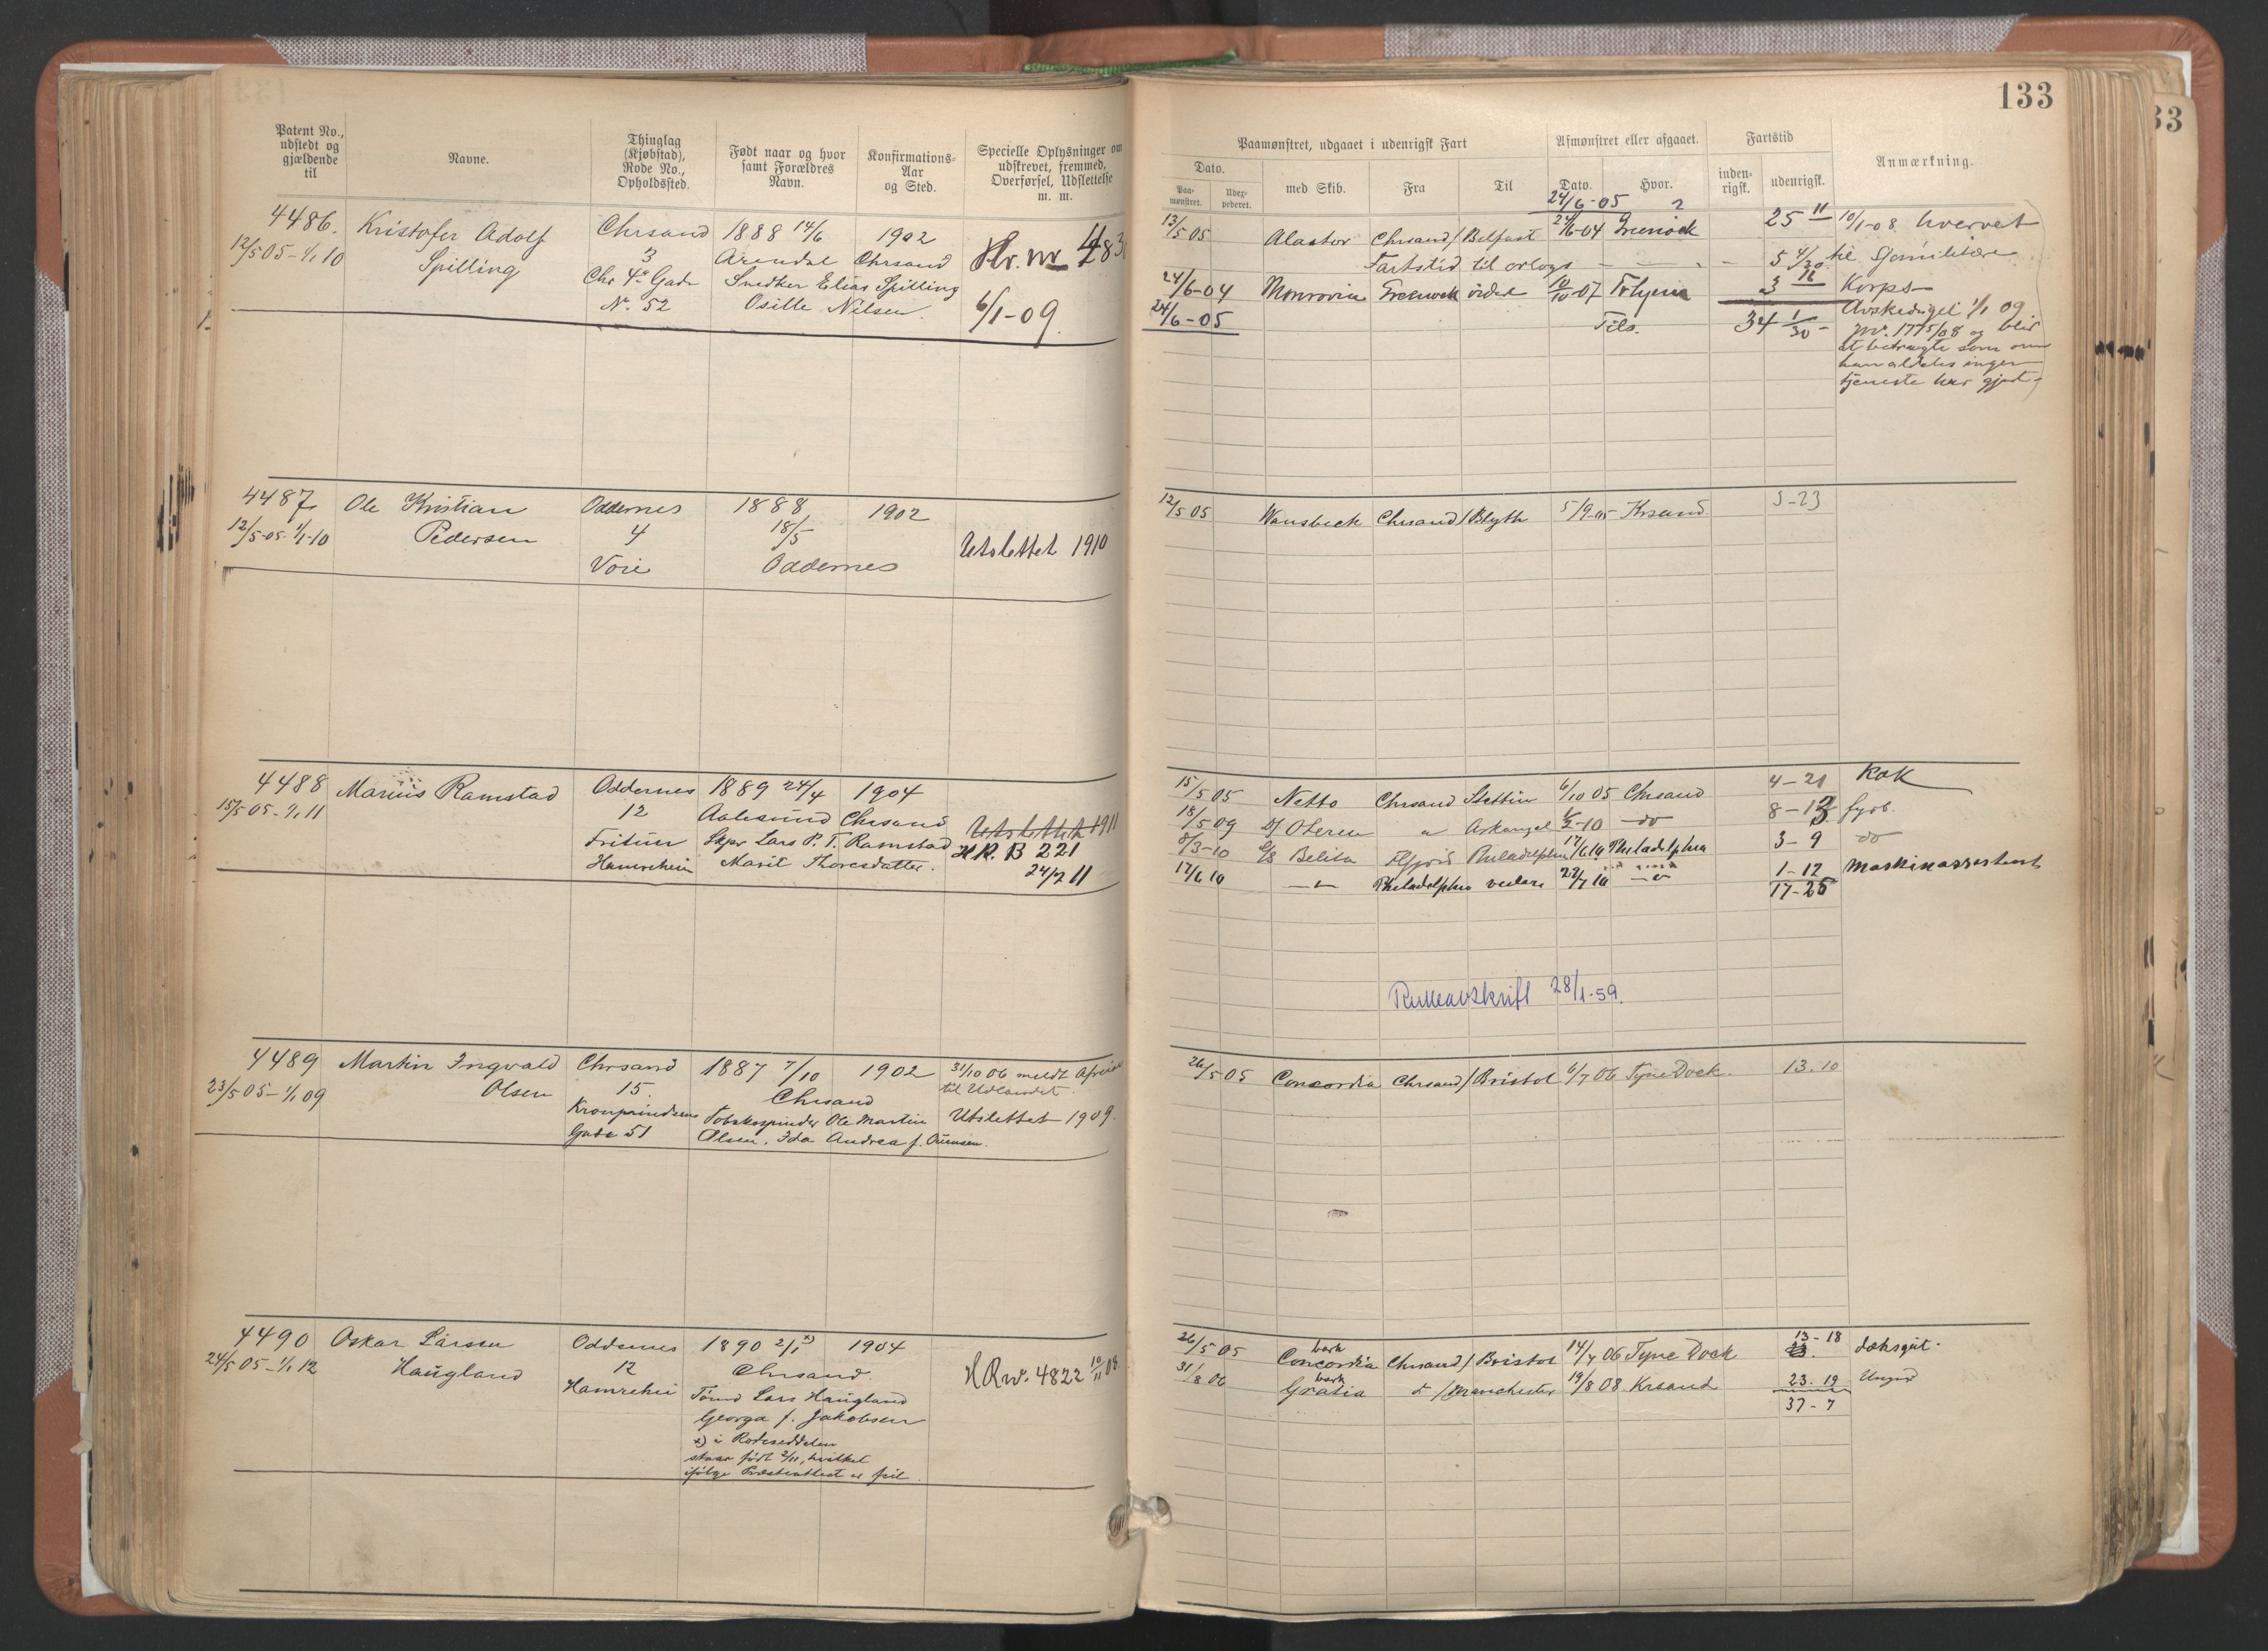 133
Patent No., udstedt og gjældende til
Navne.
Thinglag (Kjøbstad), Rode No., Opholdssted.
Født naar og hvor samt Forældres Navn.
Konfirmations-Aar og Sted.
Specielle Oplysninger om udskrevet, fremmed, Overførsel, Udslettelse m. m.
Paamønstret, udgaaet i udenrigsk Fart
Afmønstret eller afgaaet.
Fartstid
Anmærkning.
Dato.
Paa-mønstret.
Udex-pederet.
med Skib.
Fra
Til
Dato.
Hvor.
inden-rigsk.
udenrigsk.
4486.
12/5 05 - 1/1 10
Kristofer Adolf
Spilling
Chrsand
3
Chr 4de Gade
No. 52
1888 14/6
Arendal
Snedker Elias Spilling
Osille Nilsen.
1902
Chrsand
Hr. nr 483
6/1-09.
24/6-05
13/5 05 Alastor Chrsand / Belfast 24/6-04 Greenock 25 11
Fartstid til orlogs 5 4/30
24/6-04 Monrovia Greenock ordre 10/10-07 3 16
24/6-05
Tils. 34 1/30
10/1-08 hvervet
til Sjømilitære
Korps
Avskediget 1/1 09
Jnr. 1775/08 og blir
at betragte som om
han aldeles ingen
tjeneste har gjort
4487
12/5-05-1/1-10
Ole Kristian
Pedersen
Oddernes
4
Voie
1888
18/5
Oddernes
1902
Utslettet 1910
12/5 05 Wansbeck Chrsand / Blyth 5/9-05 Krsand 3-23
4488
15/5 05-1/1 11
Marius Ramstad
Oddernes
12
Frituren
Hamreheia
1889 24/4
Aalesund
Skpr Lars P. T. Ramstad
Marit Thoresdatter.
1904
Chrsand
Utslettet 1911
H.R. B 221
24/2 11
15/5 05 Netto Chrsand Stettin 6/10 05 Chrsand 4-21 Kok
18/5 09 D/ Oteren " Arkangel 1/2-10 do 8-13 fyrb.
8/3-10 Belita Philadelphia 17/6 10 Philadelphia 3-9 do
17/6 10 Philadelphia videre 28/7 10 1-12 Maskinassistent
17-25
Rulleavskrift 28/1-59.
4489
23/5 05-1/1 09
Martin Ingvald
Olsen
Chrsand
15
Kronprindsens
Gade 51
1887 7/10
Chrsand
Tobakspinder Ole Martin
Olsen, Ida Andrea f.
1902
31/10 06 meldt Afreise
til Udlandet.
Utslettet 1909.
26/5 05 Concordia Chrsand / Bristol 6/7 06 Tyne Dock. 13.10
4490
24/5 05-1/1 12
Oskar Larsen
Haugland
Oddernes
12
Hamreheia
1890 2/1 x)
Chrsand.
Tømd Lars Haugland
Georga f. Jakobsen
x) i Rodeseddelen
staar født 2/11, hvilket
ifølge Præsteattest er feil.
1904
H R nr. 4822 10/11 08.
26/5 05 bark Concordia Chrsand / Bristol 14/7 06 Tyne Dock 13-18 Dæksgut.
31/8 06 bark Gratia d / Manchester 19/8 08 Krsand 23.19 Ungmd
37-7